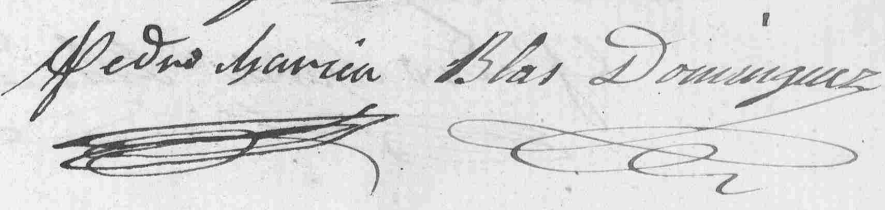 Pedro Garcia Blas Dominguez